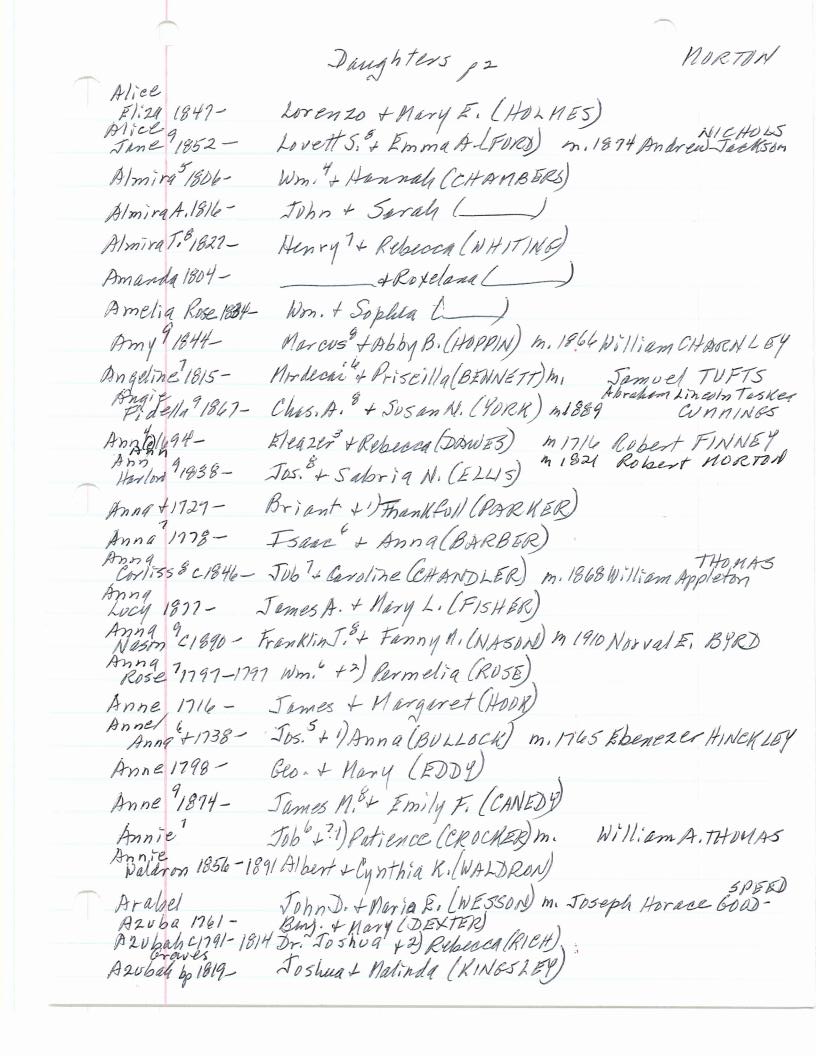 Daughters p2 MORTON
Alice
Eliza 1847- Lorenzo + Mary E. (HOLMES)
Alice NICHOLS
Jane⁹ 1852- Lovett S.⁸ + Emma A. (FORD) m. 1874 Andrew Jackson
Almira⁵ 1806- Wm.⁴ + Hannah (CHAMBERS)
Almira A. 1816- John + Sarah (______)
Almira T.⁸ 1827- Henry⁷ + Rebecca (WHITING)
Amanda 1804- ________ + Roxelana (______)
Amelia Rose 1834- Wm. + Sophia (______)
Amy⁹ 1844- Marcus⁸ + Abby B. (HOPPIN) m. 1866 William CHARNLEY
Angeline⁷ 1815- Mordecai⁶ + Priscilla (BENNETT) m. Samuel TUFTS
Angie Abraham Lincoln Tasker
Fidella⁹ 1867- Chas. A.⁸ + Susan N. (YORK) m 1889 CUMMINGS
Ann⁴ 1694- Eleazer³ + Rebecca (DAWES) m 1716 Robert FINNEY
Ann m 1821 Robert MORTON
Ann
Harlow⁹ 1838- Jos.⁸ + Sabria N. (ELLIS)
Anna + 1727- Briant + 1) Thankfull (PARKER)
Anna⁷ 1778- Isaac⁶ + Anna (BARBER)
Anna THOMAS
Corliss⁸ c1846- Job⁷ + Caroline (CHANDLER) m. 1868 William Appleton
Anna
Lucy 1877- James A. + Mary L. (FISHER)
Anna
Nason⁹ c1890- Franklin J.⁸ + Fanny M. (NASON) m 1910 Norval E. BYRD
Anna
Rose⁷ 1797-1797 Wm.⁶ + 2) Permelia (ROSE)
Anne 1716- James + Margaret (HOOK)
Anne/
Anna⁶ + 1738- Jos.⁵ + 1) Anna (BULLOCK) m. 1765 Ebenezer HINCKLEY
Anne 1798- Geo. + Mary (EDDY)
Anne⁹ 1874- James M.⁸ + Emily F. (CANEDY)
Annie⁷ Job⁶ + ?1) Patience (CROCKER) m. William A. THOMAS
Annie
Waldron 1856-1891 Albert + Cynthia K. (WALDRON)
SPEED
Arabel John D. + Maria E. (WESSON) m. Joseph Horace GOOD-
Azuba 1761- Benj. + Mary (DEXTER)
Azubah c1791-1814 Dr. Joshua + 2) Rebecca (RICH)
Graves
Azubah bp 1819- Joshua + Malinda (KINGSLEY)